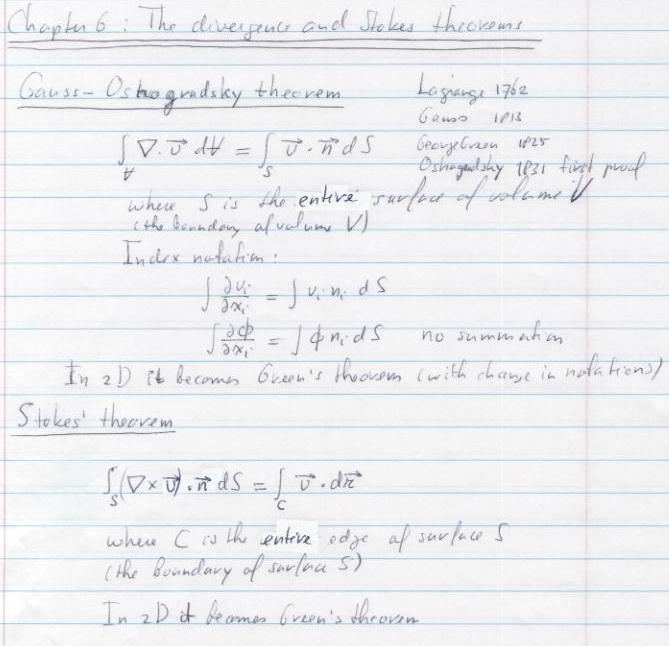 Chapter 6 : The divergence and Stokes theorems
Gauss-Ostrogradsky theorem
Lagrange 1762
Gauss 1813
George Green 1825
Ostrogradsky 1831 first proof
∫_V ∇. v⃗ dV = ∫_S v⃗ . n⃗ dS
where S is the entire surface of volume V
(the boundary of volume V)
Index notation :
∫ ∂vᵢ/∂xᵢ = ∫ vᵢ nᵢ dS
∫ ∂ϕ/∂xᵢ = ∫ ϕ nᵢ dS no summation
In 2D it becomes Green's theorem (with change in notations)
Stokes' theorem
∫_S (∇ × v⃗) . n⃗ dS = ∫_C v⃗ . dr⃗
where C is the entire edge of surface S
(the Boundary of surface S)
In 2D it becomes Green's theorem